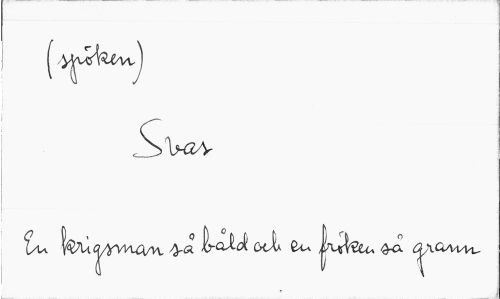 (spöken)
Svas
En krigsman så båld och en fröken så grann